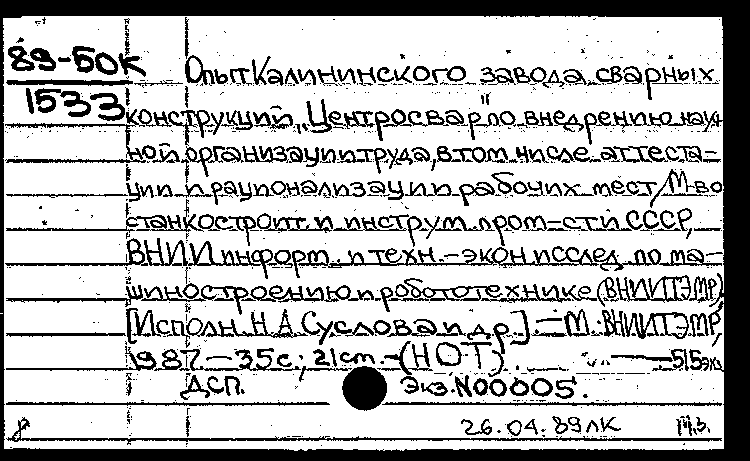 89-50К
1533
Опыт Калининского завода сварных
конструкций „Центросвар" по внедрению науч-
ной организации труда, в том числе аттеста-
ции и рационализации рабочих мест / М-во
станкостроит. и инструм. пром-сти СССР,
ВНИИ информ. и техн.-экон. исслед. по ма-
шиностроению и робототехнике (ВНИИТЭМР)
[Исполн. Н.А. Суслова и др.]. — М.: ВНИИТЭМР,
1987. — 35 с.; 21 см. — (НОТ).
515 экз.
ДСП. Экз. N00005.
26.04.89 ЛК